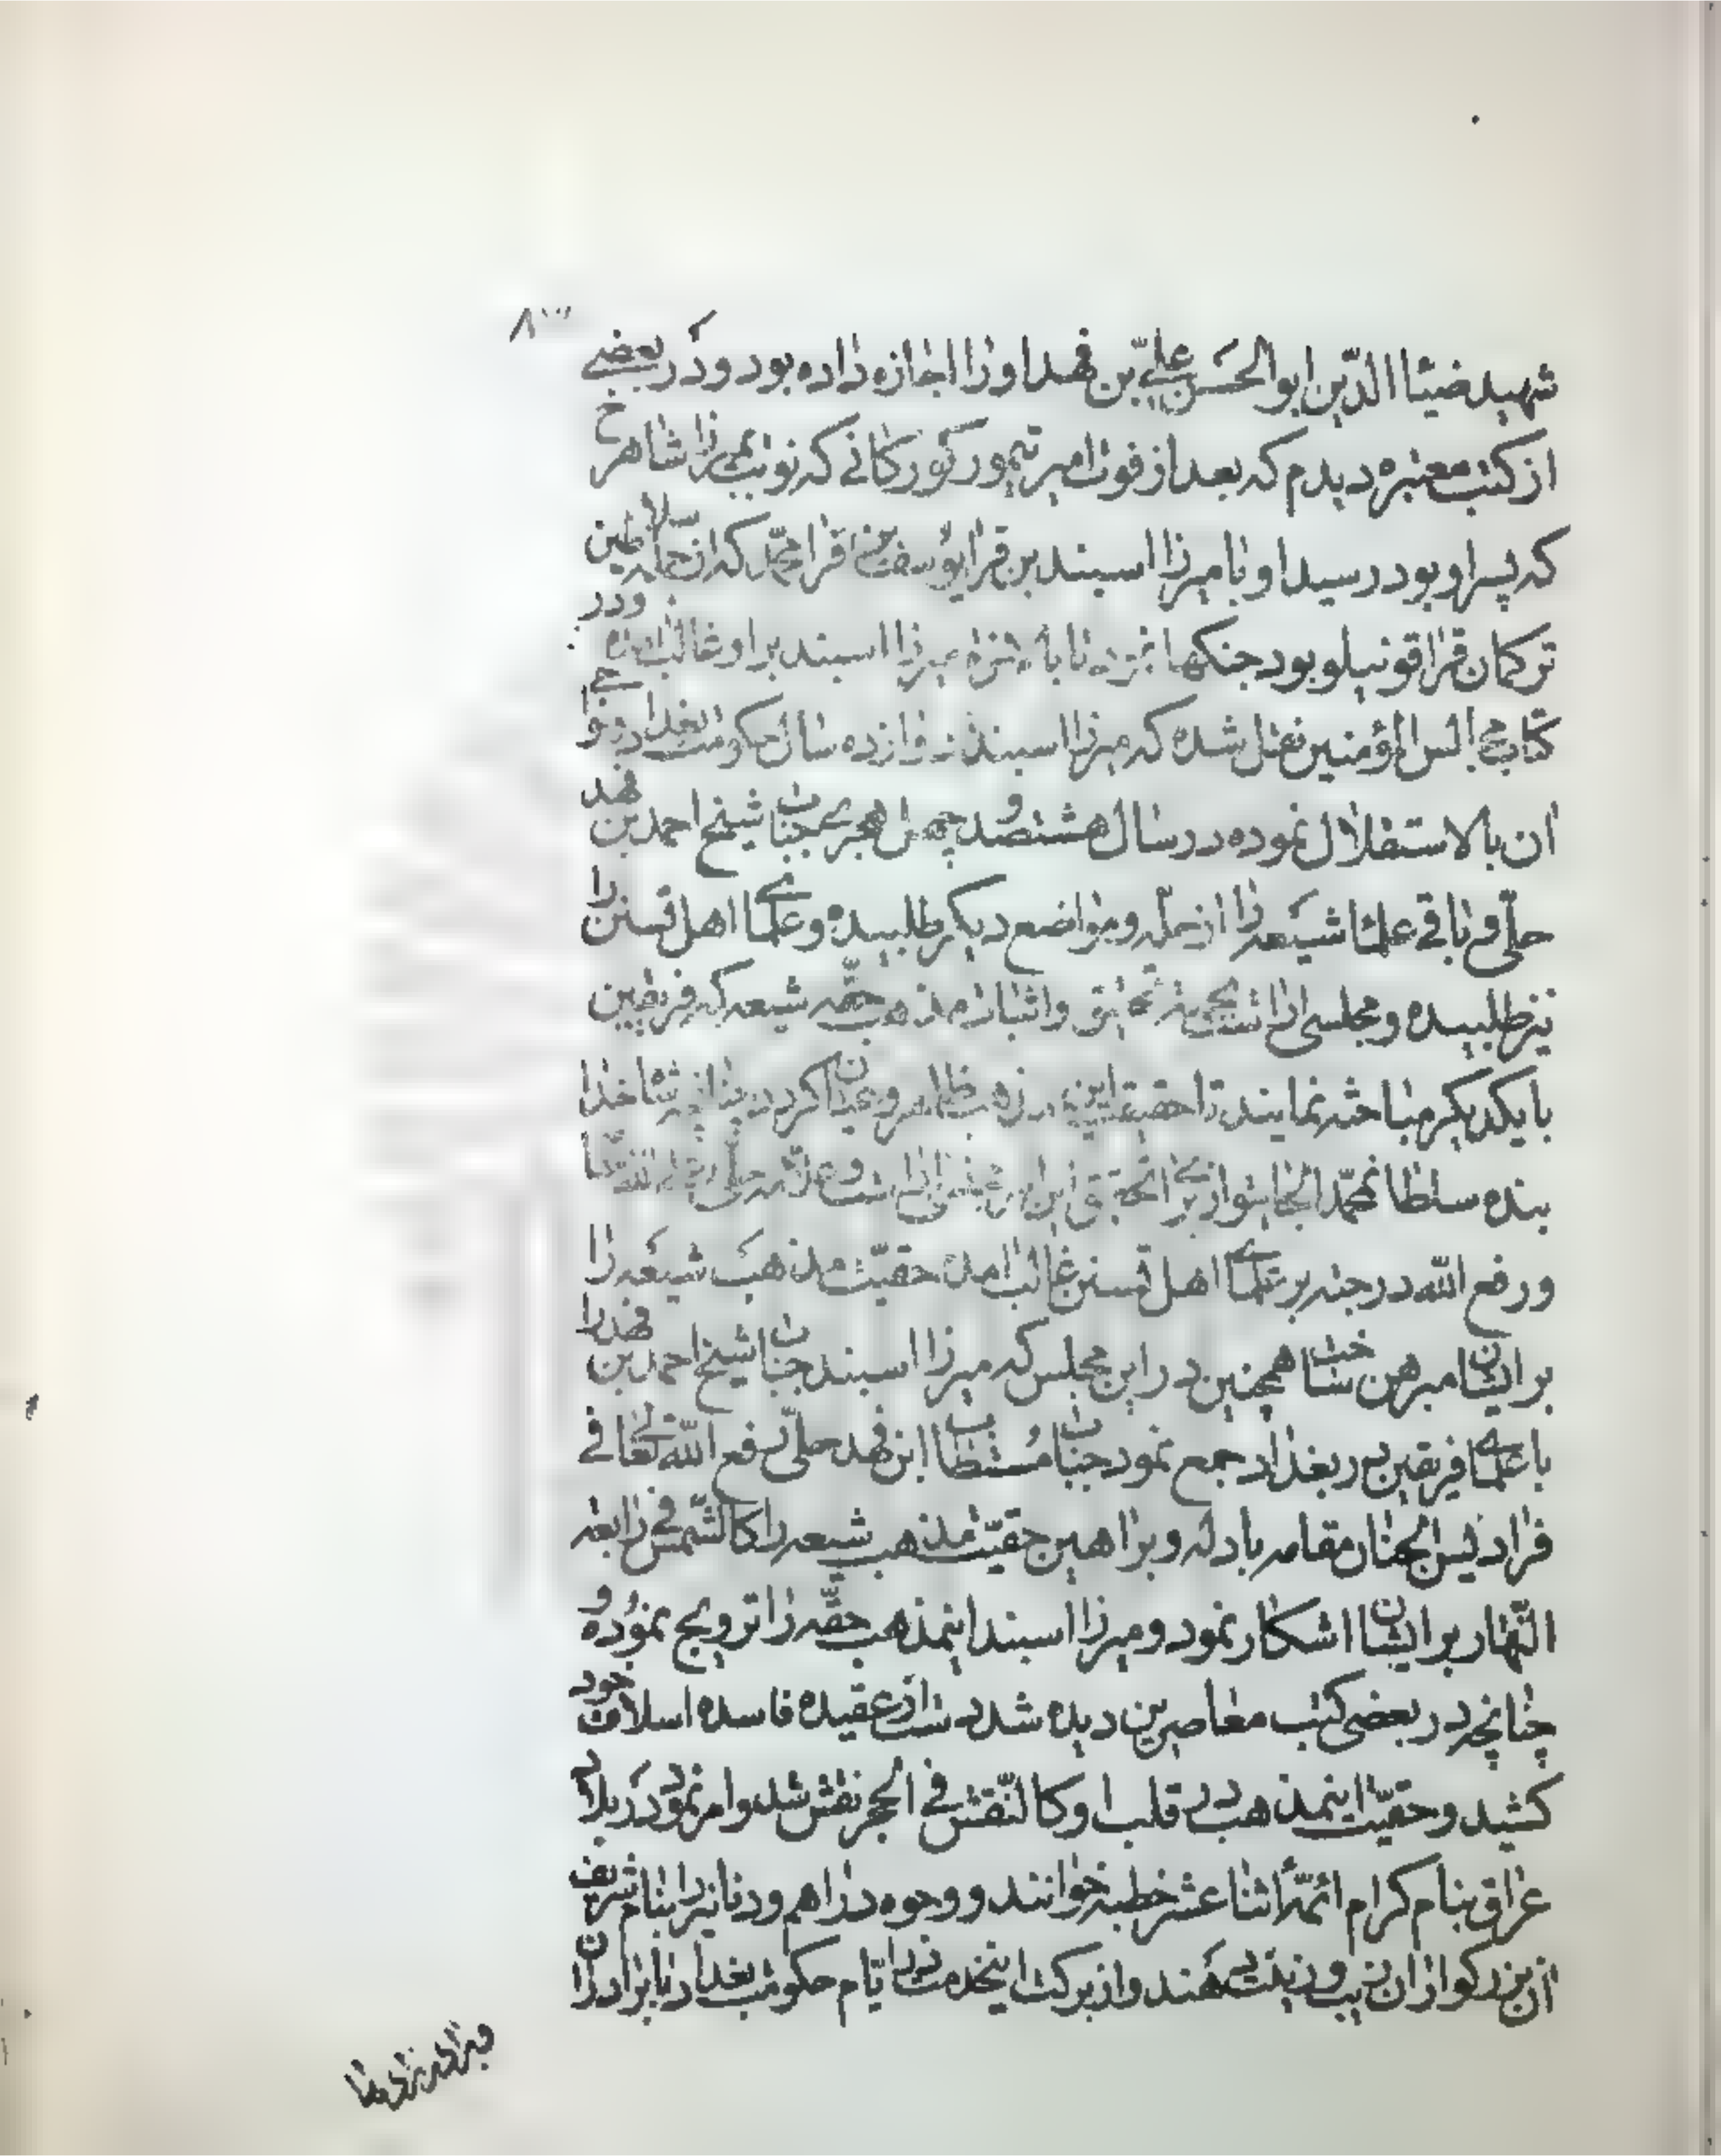 ۸۳
شهید ضیاا الدّین ابوالحسن علیّ بن فهد او را اجازه داده بود و در بعضی
از کتب معتبره دیدم که بعد از فوت امیر تیمور کورکانی که نوبت بمیرزا شاهرخ
که پسر او بود رسید او با میرزا اسبند بن قرایوسف بن قرا محمّد که از جمله سلاطین
ترکمان قراقونیلو بود جنکها نموده میرزا اسبند بر او غالب شده و در
کتاب مجالس المؤمنین نقل شده که میرزا اسبند دوازده سال حکومت بغداد و نواحی
ان بالاستقلال نموده در سال هشتصد و چهل هجری جناب شیخ احمد بن فهد
حلّی و باقی علمآ شیعه را از حلّه و مواضع دیکر طلبیده و علمای اهل تسنن را
نیز طلبیده و مجلسی اراسته بجهته تحقیق و اثبات مذهب حقّه شیعه که فریقین
با یکدیکر مباحثه نمایند تا حقیقت این مذهب ظاهر و عیان کردد چنانچه شاه خدا
بنده سلطان محمّد الجایتو از برای تحقیق این امر مجلس اراست و علّامه حلّی
و رفع الله درجته بر علمای اهل تسنن غالب امده حقیّت مذهب شیعه را
بر ایشان مبرهن ساخت همچنین در این مجلس که میرزا اسبند جناب شیخ احمد بن فهد را
با علمای فریقین در بغداد جمع نمود جناب مستطاب ابن فهد حلّی رفع الله تعالی
فی فرادیس الجنان مقامه بادله و براهین حقیّت مذهب شیعه را کالشّمس فی رابعة
النّهار بر ایشان اشکار نمود و میرزا اسبند اینمذهب حقّه را ترویج نموده و
چنانچه در بعضی کتب معاصرین دیده شد دست از عقیده فاسده اسلاف خود
کشید و حقیّت اینمذهب در قلب او کالنّقش فی الحجر نقش شد و امر نمود در بلاد
عراق بنام کرام ائمّهٔ اثنا عشر خطبه خوانند و وجوه دراهم و دنانیر را بنام شریف
آن بزرکواران زیب و زینت دهند و از برکت اینخدمت ایّام حکومت بغداد با برادران